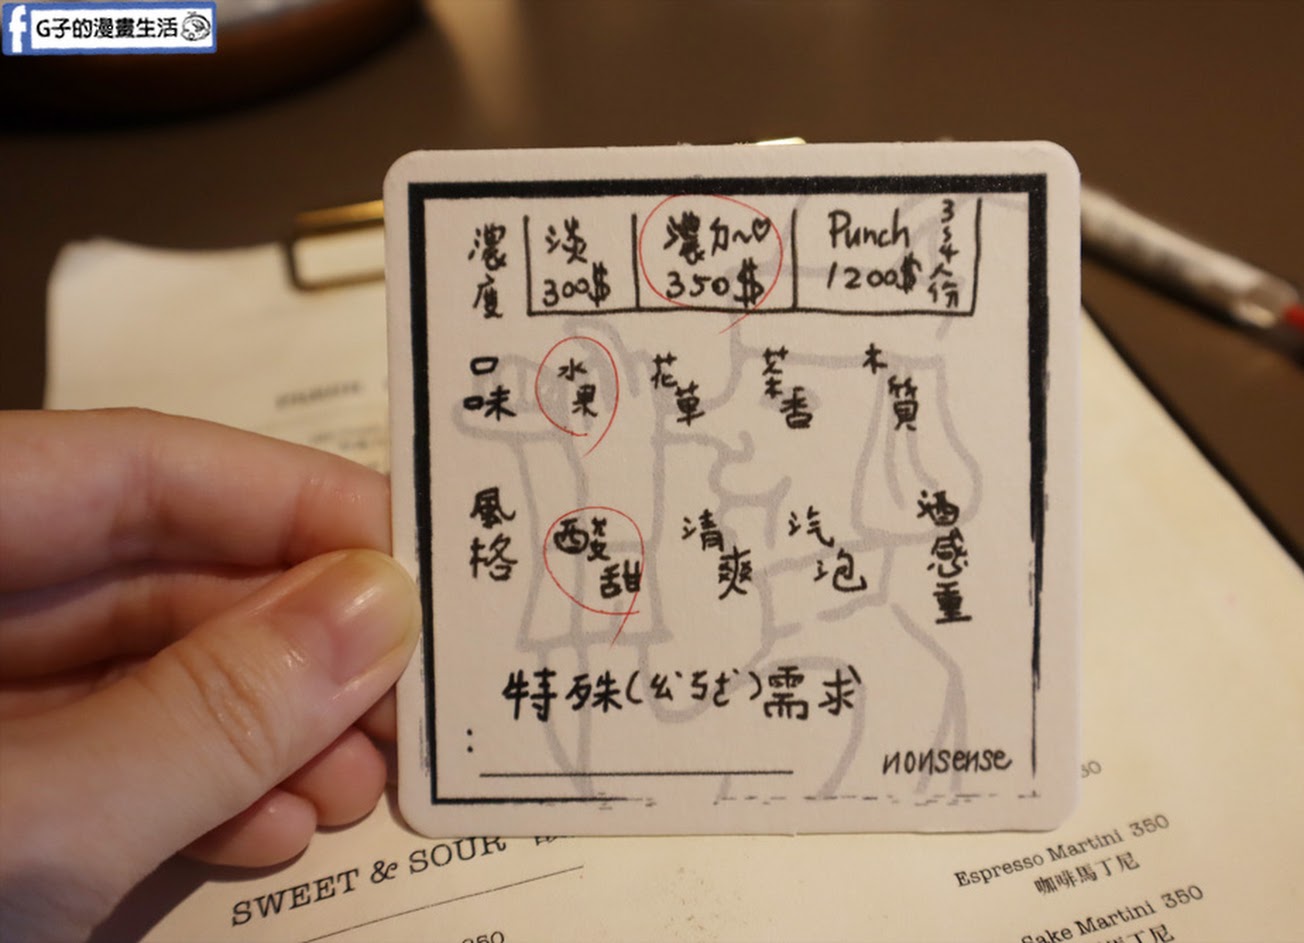 G子的漫畫生活
濃度
淡
300$
濃ㄉ~♡
350$
Punch
1200$
3~4人份
口味
水果
花草
茶香
木質
風格
酸甜
清爽
汽泡
酒感重
特殊(ㄠˇㄎㄜˋ)需求
:
nonsense
SWEET & SOUR
Espresso Martini 350
咖啡馬丁尼
Sake Martini 350
350